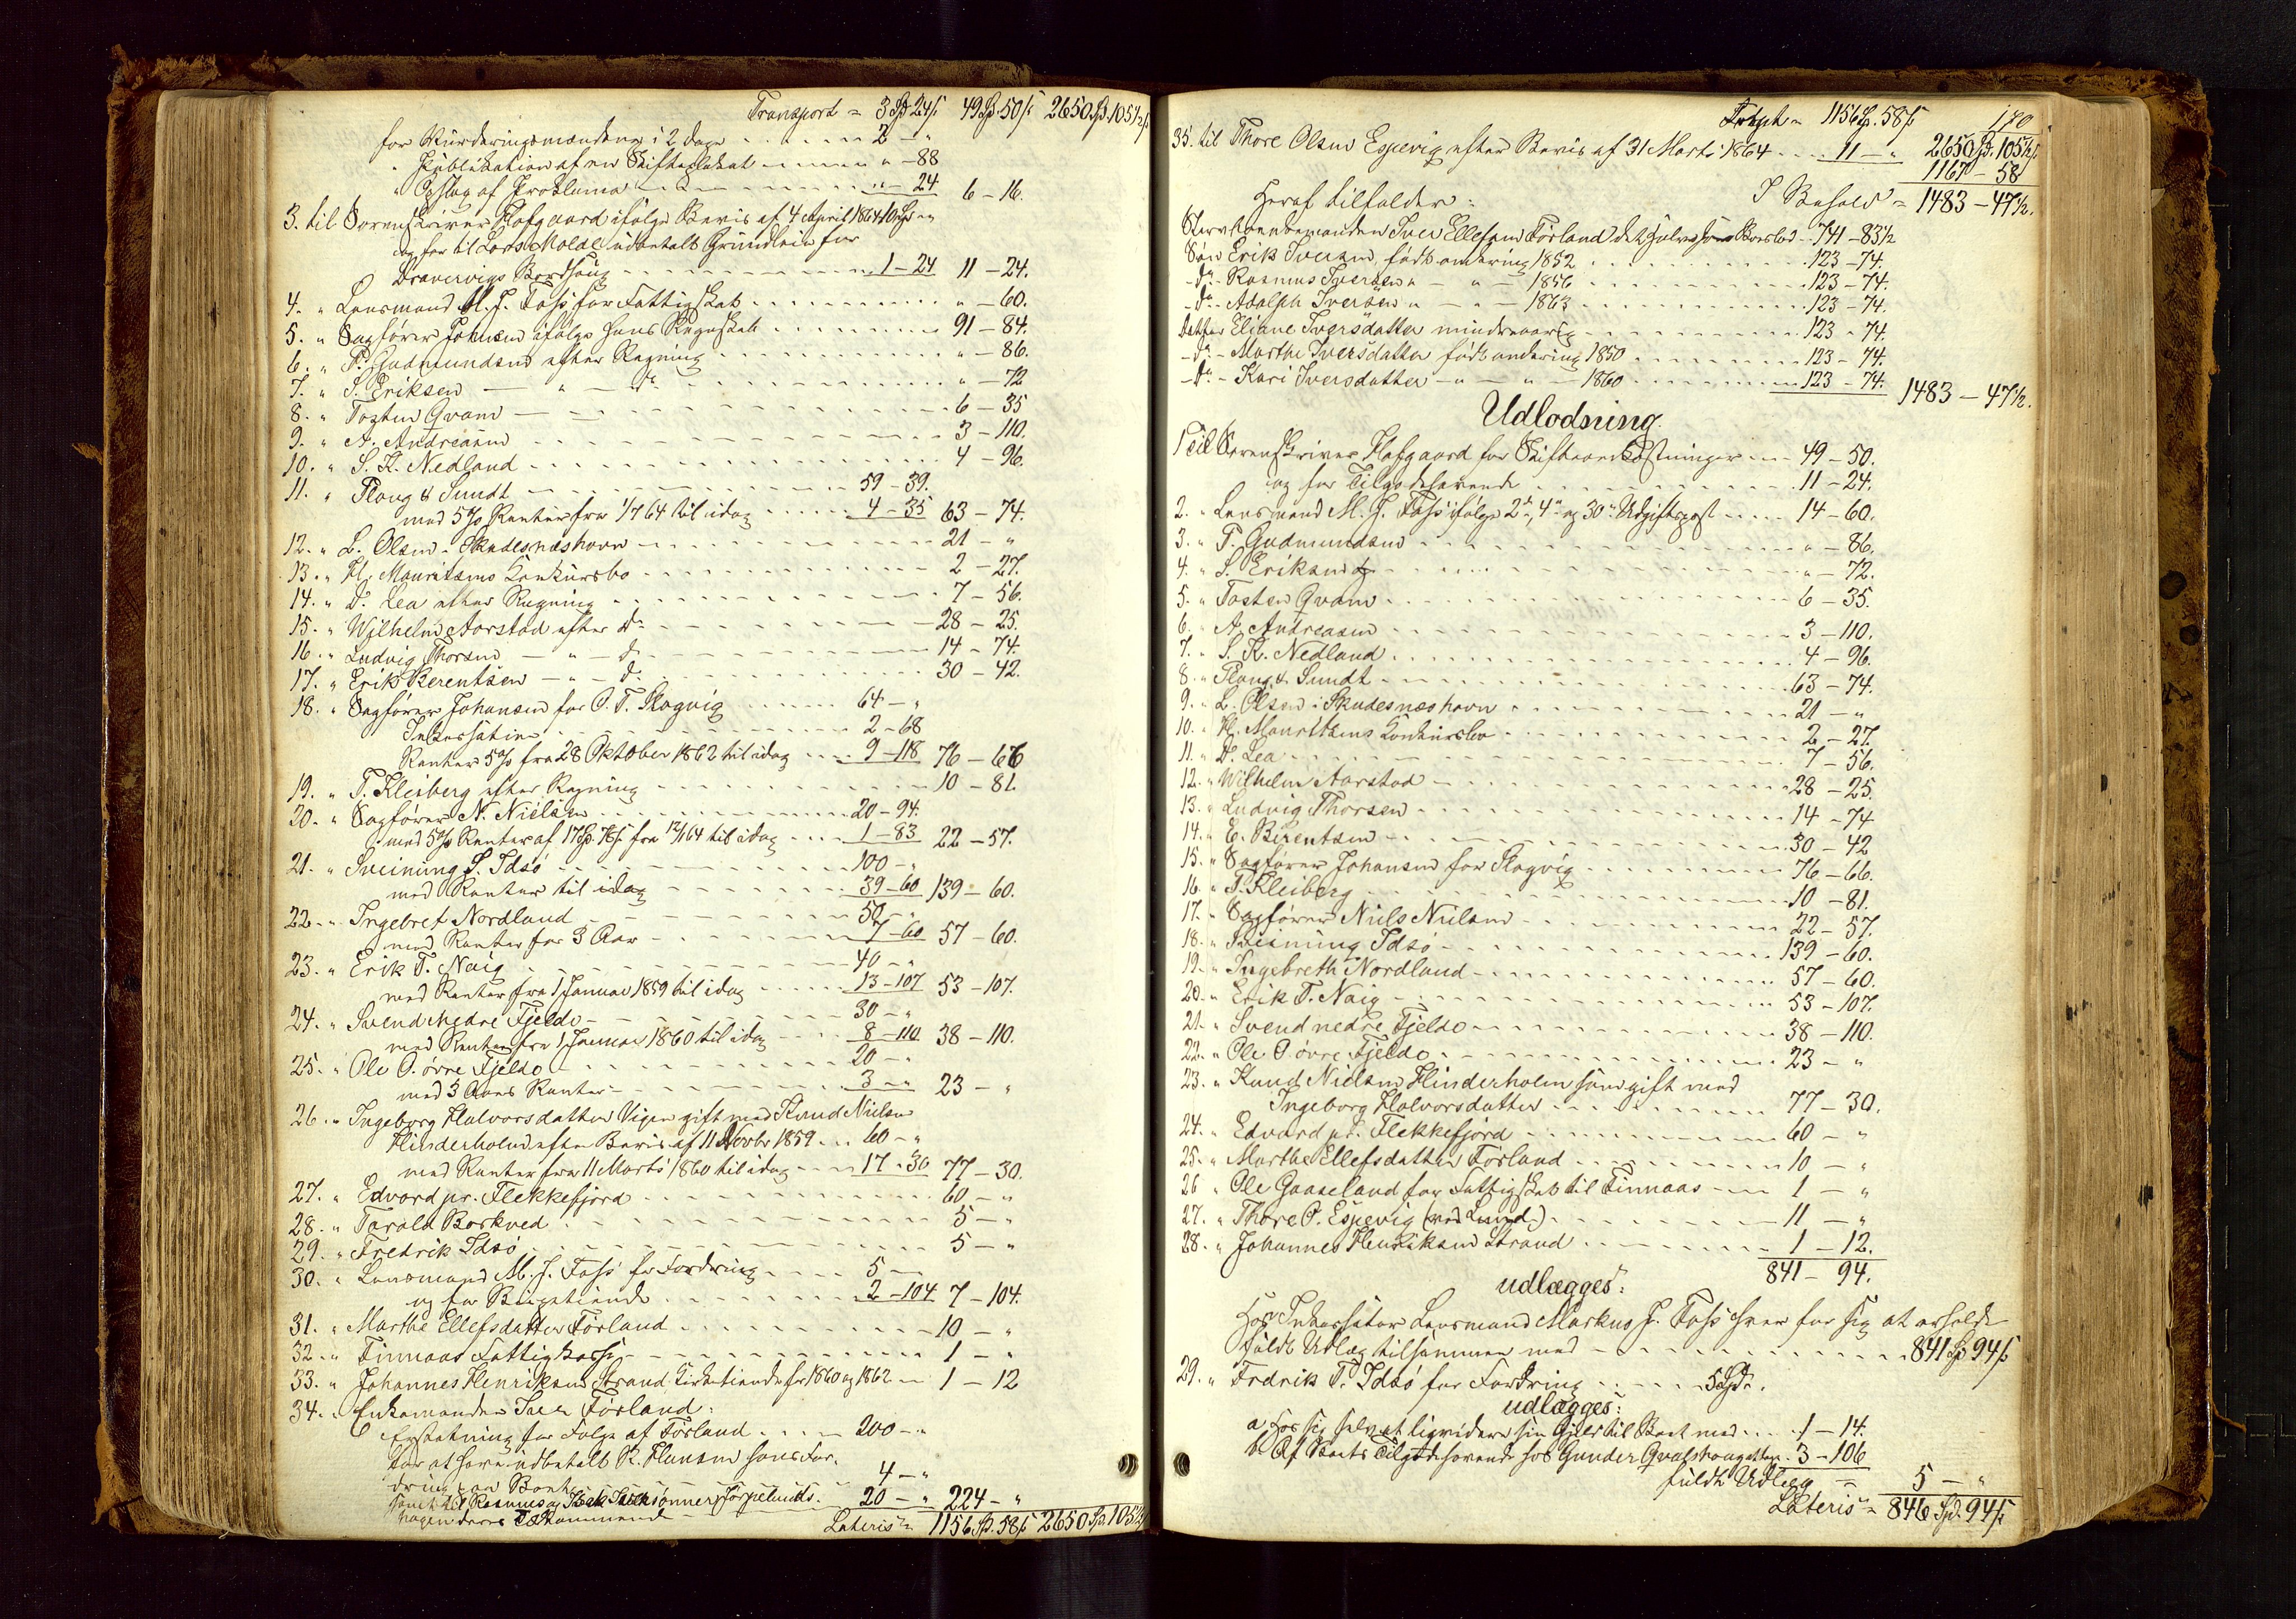 Transport = 3 Sp 24 ß 49 Sp. 50 ß 2650 Sp. 105½ ß
for Vurderingsmændene i 2 Dage 2 - "
" Publikation af en Skifteplakat " - 88
" Opslag af Proklama " - 24 6 - 16.
3. til Sorenskriver Hofgaard ifølge Bevis af 4 April 1864 10 Sp "
og for til Lars Molde udbetalt Grundleie for
Bordhuug 1 - 24 11 - 24.
4. " Lensmand M. J. Foss for Fattigskat " - 60.
5. " Sagfører Johnsen ifølge hans Regnskab 91 - 84.
6. " P. Gudmundsen efter Regning " - 86.
7. " S. Eriksen — " — do " - 72
8. " Tosten Qvam — 6 - 35
9. " A. Andreasen 3 - 110.
10. " S. K. Nedland 4 - 96.
11. " Ploug & Sundt 59 - 39.
med 5% Renter fra 1/7 64 til idag 4 - 35 63 - 74.
12. " L. Olsen i Skudesnæshavn 21 - "
13. " Hl. Mauritzens Konkursbo 2 - 27.
14. " D. Lea efter Regning 7 - 56.
15. " Wilhelm Aarstad efter do 28 - 25.
16. " Ludvig Thorsen — " — do 14 - 74.
17. " Erik Berentsen — " — do 30 - 42.
18. " Sagfører Johansen for O. T. Slogvig 64 - "
Inkassation 2 - 68
Renter 5% fra 28 Oktober 1862 til idag 9 - 118 76 - 66
19. " T. Kleiberg efter Regning 10 - 81.
20. " Sagfører N. Nielsen 20 - 94.
med 5% Renter af 17 Sp. fra 12/1 64 til idag 1 - 83 22 - 57.
21. " Sveinung S. Idsø 100 - "
med Renter til idag 39 - 60 139 - 60.
22. " Ingebret Nordland 50 - "
med Renter for 3 Aar 7 - 60 57 - 60.
23. " Erik T. Naig 40 - "
med Renter fra 1 Januar 1859 til idag 13 - 107 53 - 107.
24. " Svend nedre Fjeldo 30 - "
med Renter fra 1 Januar 1860 til idag 8 - 110 38 - 110.
25. " Ole O. øvre Fjeldo 20 - "
med 3 Aars Renter 3 - " 23 - "
26. " Ingeborg Halvorsdatter Vigen gift med Knud Nielsen
Hinderholm efter Bevis af 11 Novbr 1859 60 - "
med Renter fra 11 Marts 1860 til idag 17 - 30 77 - 30.
27. " Edvard pr. Flekkefjord 60 - "
28. " Torald Borkved 5 - "
29. " Fredrik Idsø 5 - "
30. " Lensmand M. J. Foss for Fordring 5 -
og for 2 - 104 7 - 104.
31. " Marthe Ellefsdatter Førland 10 - "
32. " Finnaas Fattigkasse 1 - "
33. " Johannes Henriksen Strand Kirketiende for 1860 og 1862 1 - 12
34. " Enkemanden Iver Førland:
Erstatning for Følge af Førland 200 - "
for at have udbetalt R. Hansen hans For-
dring paa Boet 4 - "
samt til Rasmus og 20 - " 224 - "
hagen deres Tilkommende Lateris = 1156 Sp. 58 ß 2650 Sp. 105½
Trspt = 1156 Sp. 58 ß 170
35. til Thore Olsen Espevig efter Bevis af 31 Marts 1864 11 - " 2650 Sp. 105½ ß
1167 - 58
I Behold = 1483 - 47½.
Heraf tilfalder:
Stervboenkemanden Iver Ellefsen Førland det halve som Boeslod 741 - 83½
Søn Erik Iversen, født omkring 1852 123 - 74.
- do - Rasmus Iversen " — " — 1856 123 - 74.
- do - Adolph Iversen " — " — 1863 123 - 74.
Datter Eliane Iversdatter mindreaarig 123 - 74.
- do - Marthe Iversdatter født omkring 1850 123 - 74.
- do - Kari Iversdatter — " — " — 1860 123 - 74. 1483 - 47½.
Udlodning.
1 til Sorenskriver Hofgaard for Skifteomkostninger 49 - 50.
og for Tilgodehavende 11 - 24.
2. " Lensmand M. J. Foss ifølge 2den, 4de og 30te Udgiftspost 14 - 60.
3. " P. Gudmundsen " - 86.
4. " S. Eriksen " - 72.
5. " Tosten Qvam 6 - 35.
6. " A. Andreasen 3 - 110.
7. " S. K. Nedland 4 - 96.
8. " Ploug & Sundt 63 - 74.
9. " L. Olsen i Skudesnæshavn 21 - "
10. " Hl. Mauritzens Konkursbo 2 - 27.
11. " D. Lea 7 - 56.
12. " Wilhelm Aarstad 28 - 25.
13. " Ludvig Thorsen 14 - 74
14. " E. Berentsen 30 - 42
15. " Sagfører Johansen for Slogvig 76 - 66.
16. " T. Kleiberg 10 - 81.
17. " Sagfører Niels Nielsen 22 - 57.
18. " Sveinung Idsø 139 - 60.
19. " Ingebreth Nordland 57 - 60.
20. " Erik T. Naig 53 - 107.
21. " Svend nedre Fjeldo 38 - 110.
22. " Ole O. øvre Fjeldo 23 - "
23. " Knud Nielsen Hinderholm som gift med
Ingeborg Halvorsdatter 77 - 30.
24. " Edvard pr. Flekkefjord 60 - "
25. " Marthe Ellefsdatter Førland 10 - "
26 " Ole Gaaseland for Fattigskat til Finnaas 1 - "
27. " Thore O. Espevig (ved Lund.) 11 - "
28. " Johannes Henriksen Strand 1 - 12.
841 - 94.
udlægges:
Hos Inkassator Lensmand Markus J. Foss hver for sig at erholde
fuldt Udlæg tilsammen med 841 Sp 94 ß
29. " Fredrik T. Idsø for Fordring 5 Spd.
udlægges:
a Hos sig selv at liqvidere sin Gjæld til Boet med 1 - 14.
b. Af Boets Tilgodehavende hos Gunder Qvalshoug 3 - 106
fuldt Udlæg = 5 - "
Lateris = 846 Sp. 94 ß